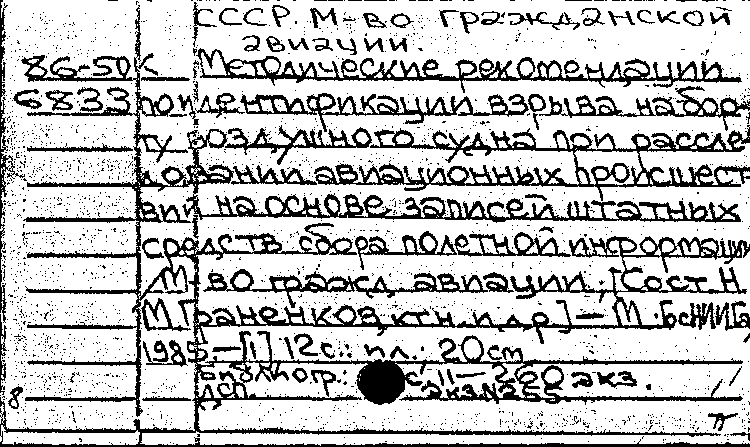 СССР. М-во гражданской
авиации.
86-50К Методические рекомендации
6833 по идентификации взрыва на бор-
ту воздушного судна при рассле-
довании авиационных происшест-
вий на основе записей штатных
средств сбора полетной информации
/М-во гражд. авиации; [Сост. Н.
М. Граненков, к.т.н. и др.] — М.: ГосНИИГА
1985.—[1] 12 с.: ил.; 20 см
Библиогр.: с. 11 — 260 экз.
8 ДСП. Экз. N 255.